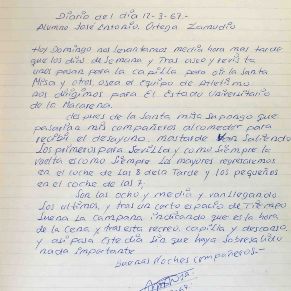 Diario del día 12-3-67.-
Alumno José Antonio Ortega Zamudio
Hoy Domingo nos levantamos media hora mas tarde
que los días de semana y tras aseo y revista
unos pasan para la capilla para oir la Santa
Misa y otros, osea el equipo de Atletismo
nos dirigimos para El Estadio Universitario
de la Macarena.
después de la Santa misa supongo que
pasarian mis compañeros al comedor para
recibir el desayuno. mas tarde van saliendo
los primeros para Sevilla y como siempre la
vuelta es como siempre los mayores regresaremos
en el coche de las 8 de la Tarde y los pequeños
en el coche de las 7,
Son las ocho y media y van llegando
los ultimos, y tras un corto espacio de Tiempo
suena La campana indicando que es la hora
de la cena y tras esta recreo, capilla y descanso,
y asi pasa este día sin que haya sobresalido
nada importante
Buenas Noches compañeros.-